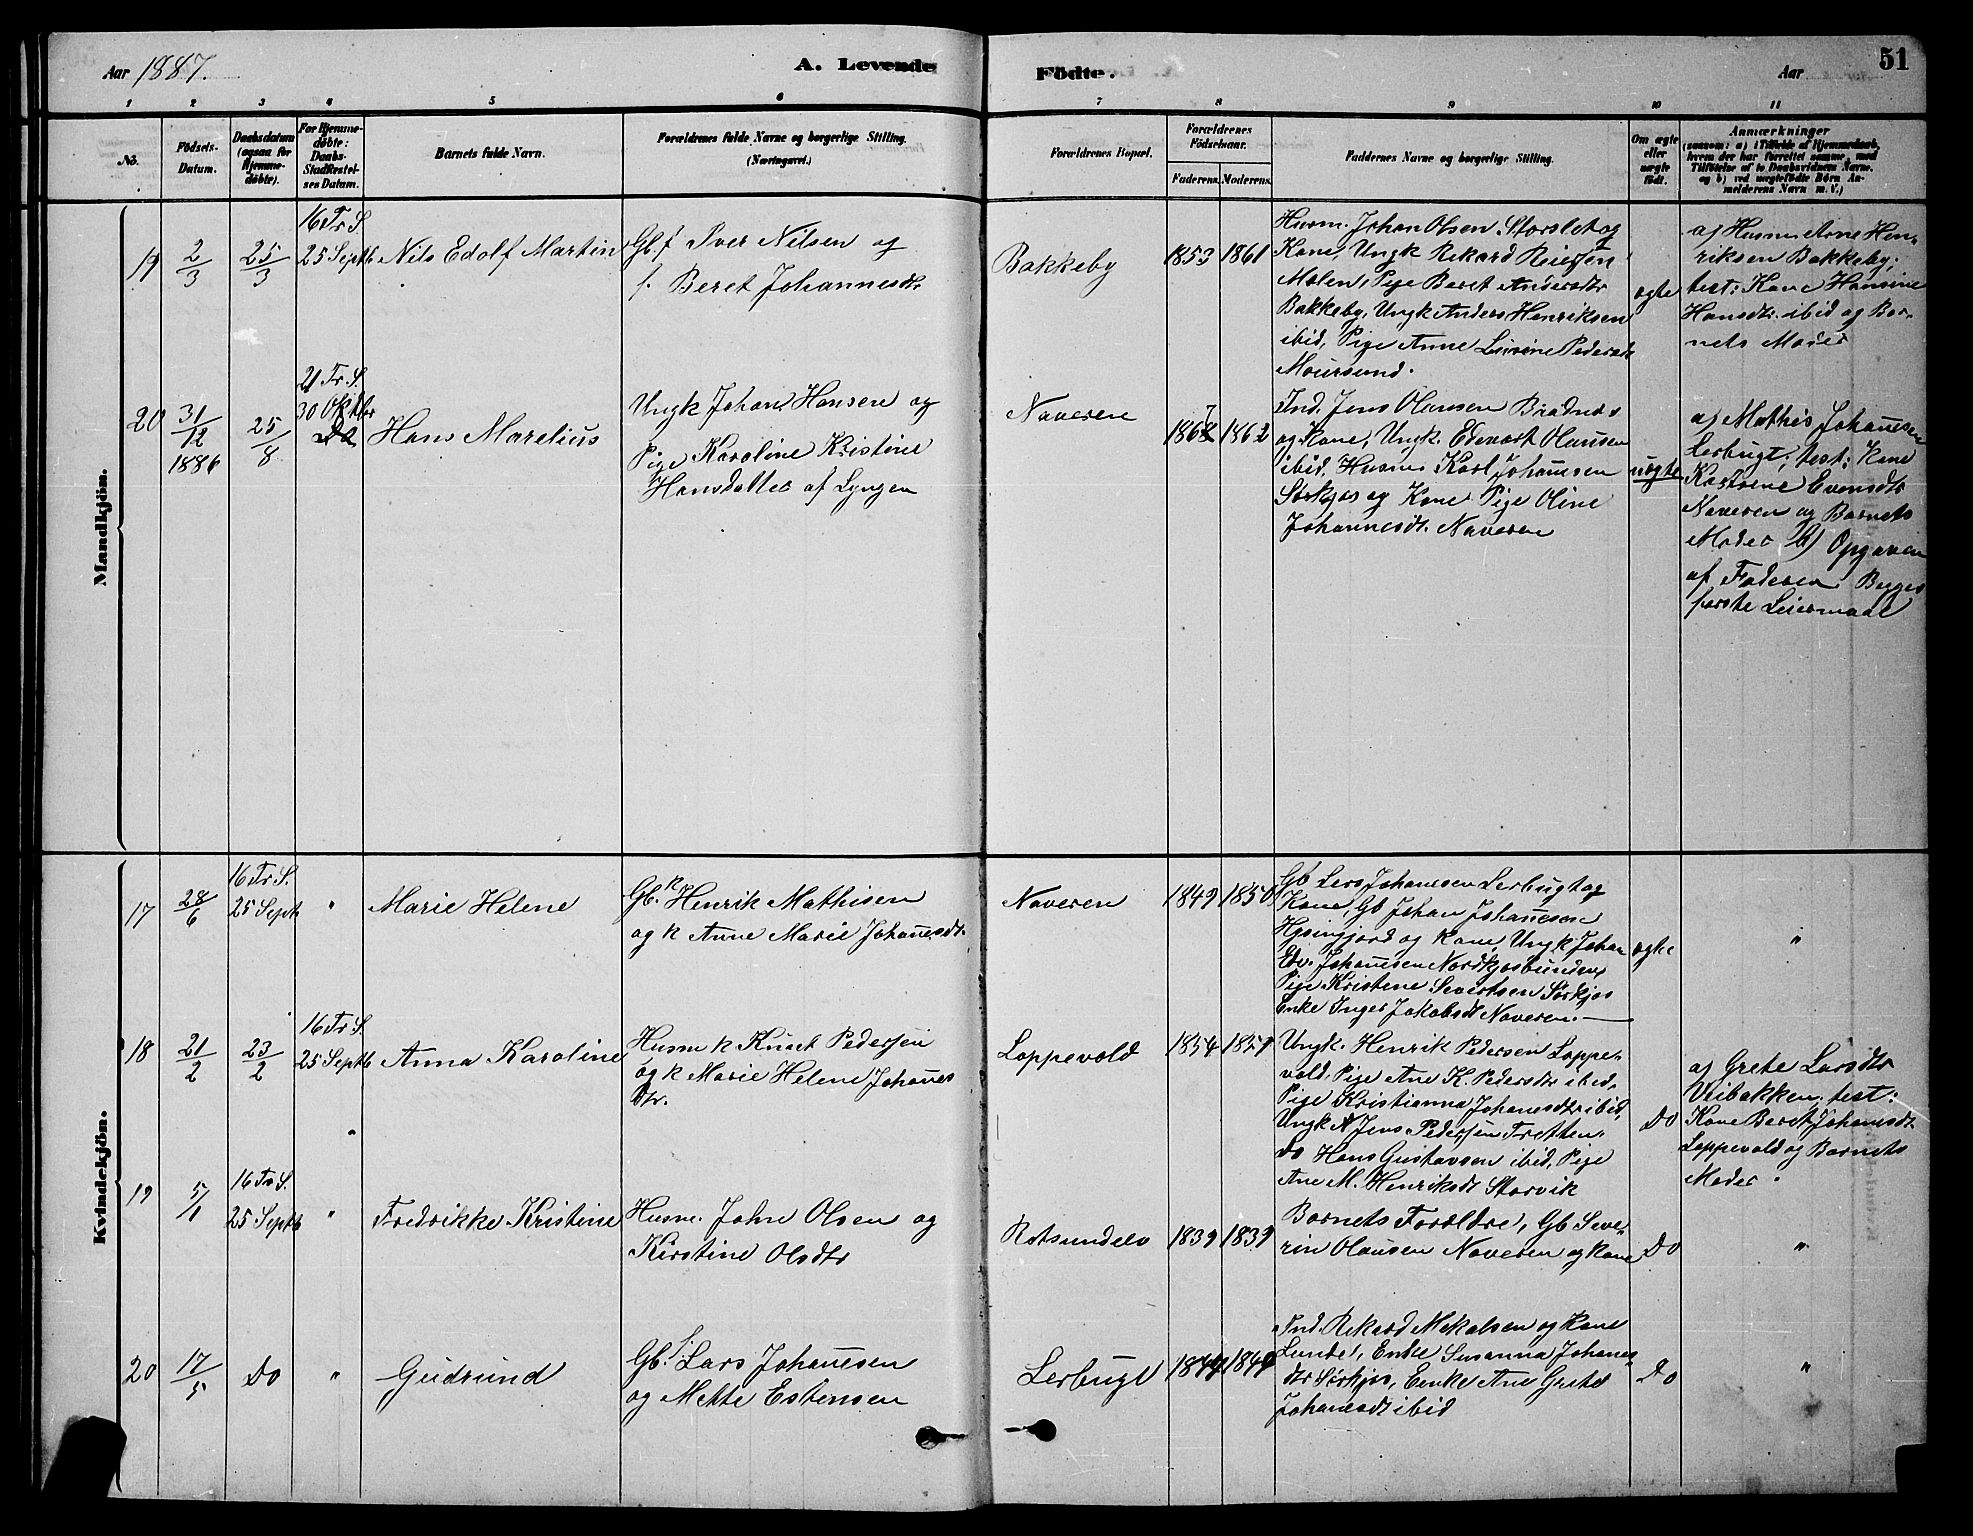 Aar 1887.
A. Levende
Födte.
Aar
51
1 2 3 4 5 6 7 8 9 10 11
No.
Födsels-
Datum.
Daabsdatum
(ogsaa for
Hjemme-
døbte).
For Hjemme-
døbte:
Daabs-
Stadfæstel-
ses Datum.
Barnets fulde Navn.
Forældrenes fulde Navne og borgerlige Stilling.
(Næringsvei.)
Forældrenes Bopæl.
Forældrenes
Fødselsaar.
Faderens. Moderens.
Faddernes Navne og borgerlige Stilling.
Om ægte
eller
uægte
født.
Anmærkninger
(saasom: a) i Tilfælde af Hjemmedaab,
hvem der har forrettet samme, med
Tilføielse af to Daabsvidners Navne,
og b) ved uægtefødte Børn An-
melderens Navn m. V.)
Mandkjön.
19
2/3
25/3
16 Tr. S.
25 Septb
Nils Edolf Martin
Gb. f Iver Nilsen og
f. Beret Johannesdtr
Bakkeby
1853
1861
Husm. Johan Olsen Storslet og
Kone, Ungk Rikard Reiersen
Molen, Pige Beret Andersdtr
Bakkeby, Ungk Anders Henriksen
ibid, Pige Anne Lusine Pedersdtr
Moursund.
ægte
a) Husm Arne Hen-
riksen Bakkeby;
test: Kone Hansine
Hansdtr. ibid og Bar-
nets Moder
20
31/12
1886
25/8
21 Tr. S.
30 Oktbr
Hans Marelius
Ungk Johan Hansen og
Pige Karoline Kristine
Hansdatter af Lyngen
Naveren
1867
1862
Ind. Jens Olausen Bradnes
og Kone, Ungk. Edevart Olausen
ibid, Husm Karl Johannesen
Sørkjos og Kone Pige Oline
Johannesdt. Naveren
uægte
a) Mathis Johannesen
Lerbugt; test: Kone
Evensdtr
Naveren og Barnets
Moder b) Opgaven
af Faderen. Begges
første Leiermaal
Kvindekjön.
17
28/6
16 Tr. S.
25 Septb
"
Marie Helene
Gb. k Henrik Mathisen
og k Anne Marie Johanesdt.
Naveren
1849
1850
Gb Lars Johannesen Lerbugt og
Kone, Gb Johan Johannesen
Hjemfjord og Kone, Ungk Johan
Edv. Johannesen Nordkjosbunden,
Pige Kristine Severtsen Sørkjos
Enke Inger Jakobsdt Naveren.
ægte
"
18
21/2
23/2
16 Tr. S.
25 Septb
Anna Karoline
Husm k Knut Pedersen
og k Marie Helene Johannes
dtr.
"
Loppevold
1854
1857
Ungk. Henrik Pedersen Loppe-
vold, Pige Ane K. Pedersdtr ibid,
Pige Kristianna Johanesdtr ibid,
Ungk N Jens Pedersen Tretten,
do Hans Gustavsen ibid, Pige
Ane M. Henriksdt Storvik
Do
a) Grete Larsdtr
Veibakken; test:
Kone Beret Johanesdt
Loppevold og Barnets
Moder.
19
5/1
16 Tr S.
25 Septb
"
Fredrikke Kristine
Husm. John Olsen og
Kirstine Olsdtr
Rotsundelv
1839
1839
Barnets Forældre, Gb Seve-
rin Olausen Naveren og Kone
Do
"
20
17/5
Do
"
Gudrund
Gb. s. Lars Johannesen
og Mette Estensen
Lerbugt
1844
1849
Ind. Rikard Mikalsen og Kone
Lunde, Enke Susanna Johanes-
dtr Sørkjos, Eenke Ane Grete
Johanesdt ibid
Do
"